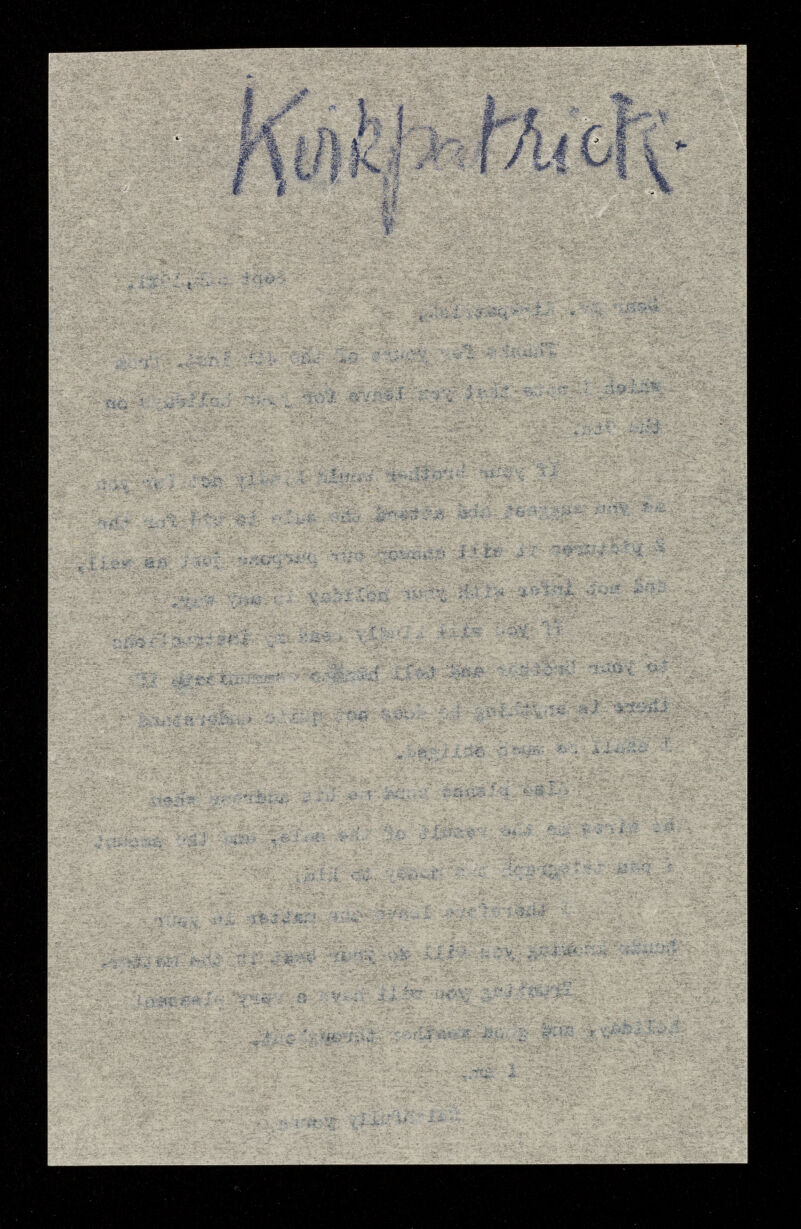 Kirkpatrick.
Sept
Dear Mr. Kirkpatrick,
Thanks for yours of the 4th inst. from
which I note that you leave for your holidays on
the
If your brother would kindly act for you
as you suggest and attend the sale to bid for the
2 pictures it will answer our purpose just as well,
and not infer with your holiday in any way.
If you will kindly read my instructions
to your brother and tell him to communicate if
there is anything he does not quite understand
I shall be much obliged.
Also please send me his address when
he wires me the result of the sale, and the amount
I can telegraph the money to him
I therefore leave the matter in your
hands knowing you will do your best in the matter.
Trusting you will have a very pleasant
holiday, and good weather throughout,
I am,
Faithfully yours